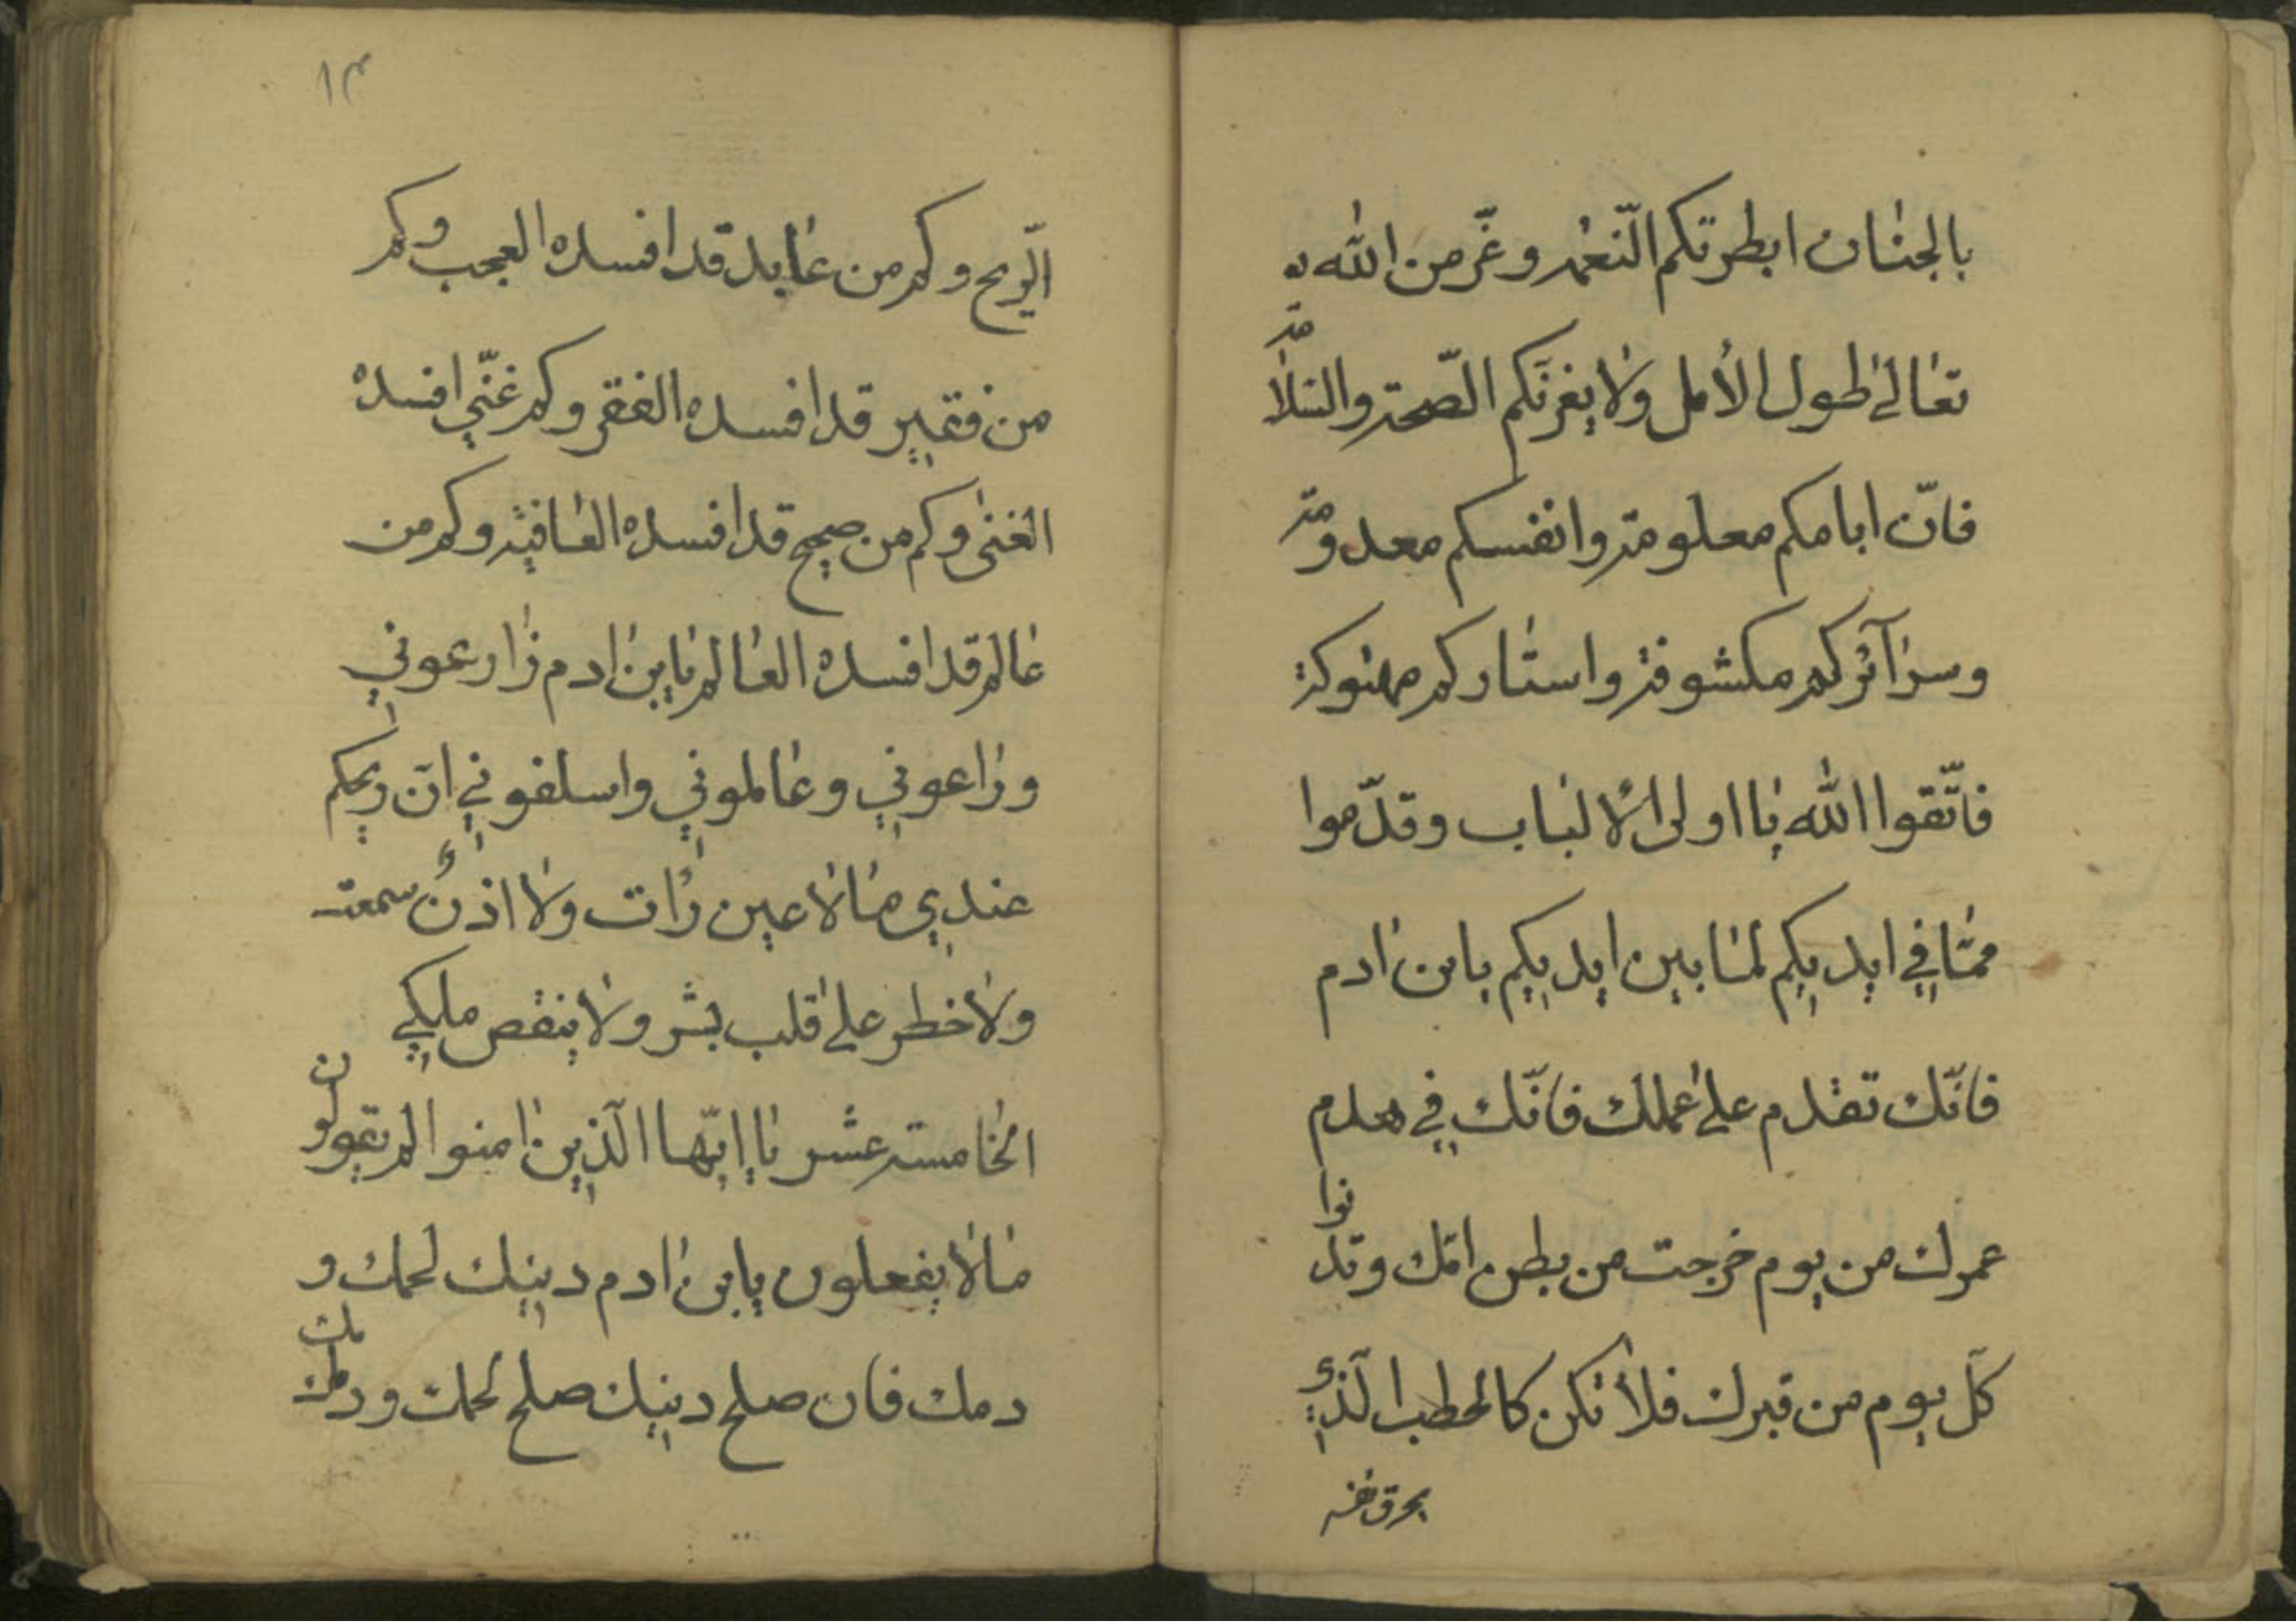 بالجنان ابطرتكم النّعمة وغرّ من الله
تعالى طول الأمل ولا يغرنّكم الصّحة والسّلامة
فانّ ايامكم معلومة وانفسكم معدومة
وسرآئركم مكشوفة واستاركم مهتوكة
فاتّقوا الله يا اولى الالباب وقدّموا
ممّا في ايديكم لما بين ايديكم يابن ادم
فانّك تقدم على عملك فانّك في هدم
عمرك من يوم خرجت من بطن امّك وتدنوا
كلّ يوم من قبرك فلا تكن كالحطب الّذي
يحرق نفسه
١٣
الرّيح وكم من عابد قد افسده العجب وكم
من فقير قد افسده الفقر وكم غنّي افسده
الغنى وكم من صحيح قد افسده العافية وكم من
عالم قد افسده العالم يابن ادم زارعوني
وراعوني وعاملوني واسلفوني انّ ربحكم
عندي ما لا عين رات ولا اذن سمعت
ولا خطر على قلب بشر ولا ينقص ملكي
الخامسة عشر يا ايّها الّذين امنوا لم تقولون
ما لا يفعلون يابن ادم دينك لحمك و
دمك فان صلح دينك صلح لحمك ودمك